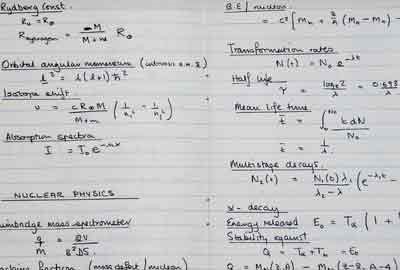 Rydberg Const.
R∞ = R∞
R_Hydrogen = M / (M + m) R∞
Orbital angular momentum
L² = l(l+1)ħ²
Isotope shift.
ν = cR∞M / (M+m) (1/n₁² - 1/n₂²)
Absorption spectra
I = I₀e
NUCLEAR PHYSICS
mass spectrometer
q/M = 2V / B²DS.
fraction (mass defect / nucleon)
B.E / nucleon.
= c² [Mn + Z/A (
Transformation rates
N(t) = N₀ e^-λt
Half life
τ = loge2 / λ = 0.693 / λ
Mean life time
t̄ = ∫ t dN / N₀
t̄ = 1/λ
Multistage decays.
N₂(t) = N₁(0) λ₁ / (λ₂ - λ₁) (e^-λ₁t -
α - decay
Energy released E₀ = Tα (1 +
Stability against
Q = Tα + Tb = E₀
Q = M (Z,A) - M (Z-2, A-4)